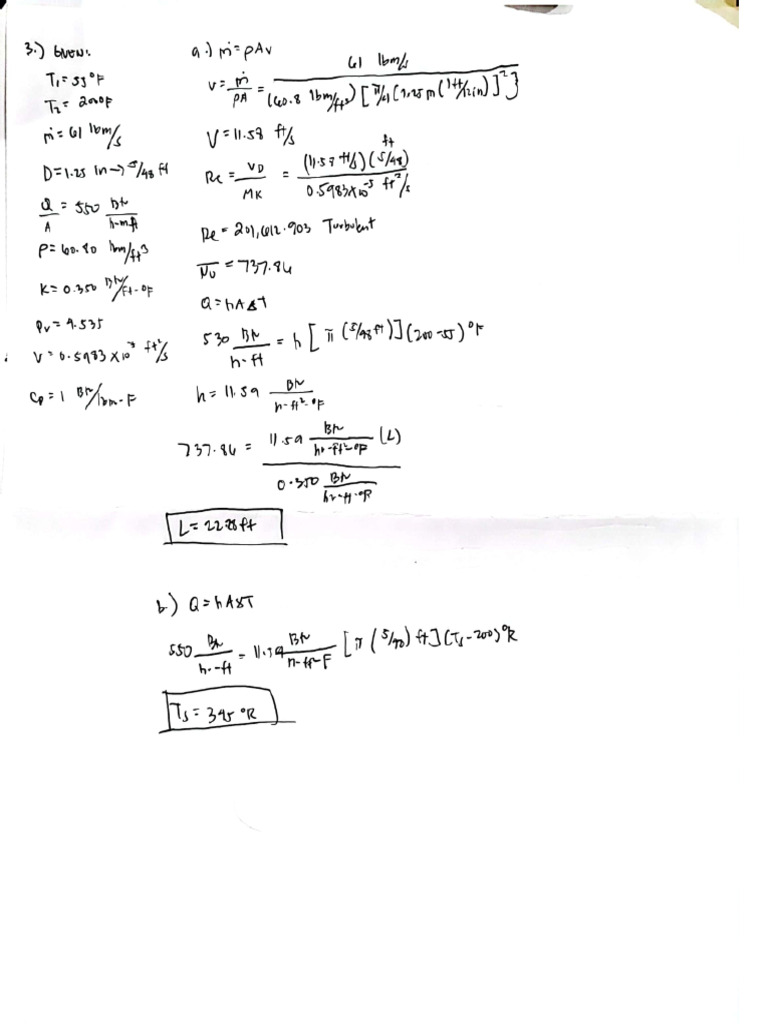 3.) Given:
T₁ = 55°F
T₂ = 200°F
ṁ = 61 lbm/s
D = 1.25 in → 5/48 ft
Q/A = 550
ρ = 60.80 lbm/ft³
K = 0.350 Btu/ft-°F
ν = 0.5983 x 10 ft²/s
Cp = 1 Btu/lbm-F
a.) ṁ = ρAv
v = ṁ/ρA = 61 lbm/s / (60.8 lbm/ft³) [π/4 (1.25 in (1ft/12in)]²}
V = 11.58 ft/s
Re = VD/MK = (11.57 ft/s) (5/48) ft / 0.5983 x 10⁻⁵ ft²/s
Re = 201,612.903 Turbulent
Nu = 737.86
Q = hAΔT
530 Btu/h-ft = h [π (5/48 ft)] (200-55)°F
h = 11.59 Btu/h-ft²-°F
737.86 = 11.59 Btu/hr-ft²-°F (L) / 0.350 Btu/hr-ft-°R
L = 22.28 ft
b.) Q = hAΔT
550 Btu/h-ft = Btu/h-ft²-F [π ft] (Ts - 200)°R
Ts = 345 °R